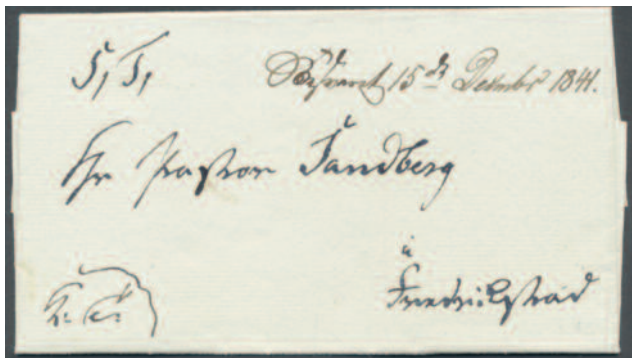 S, T,
Besvaret 15de Decembr 1841.
Hr Pastor Sandberg
à
Fredrikstad